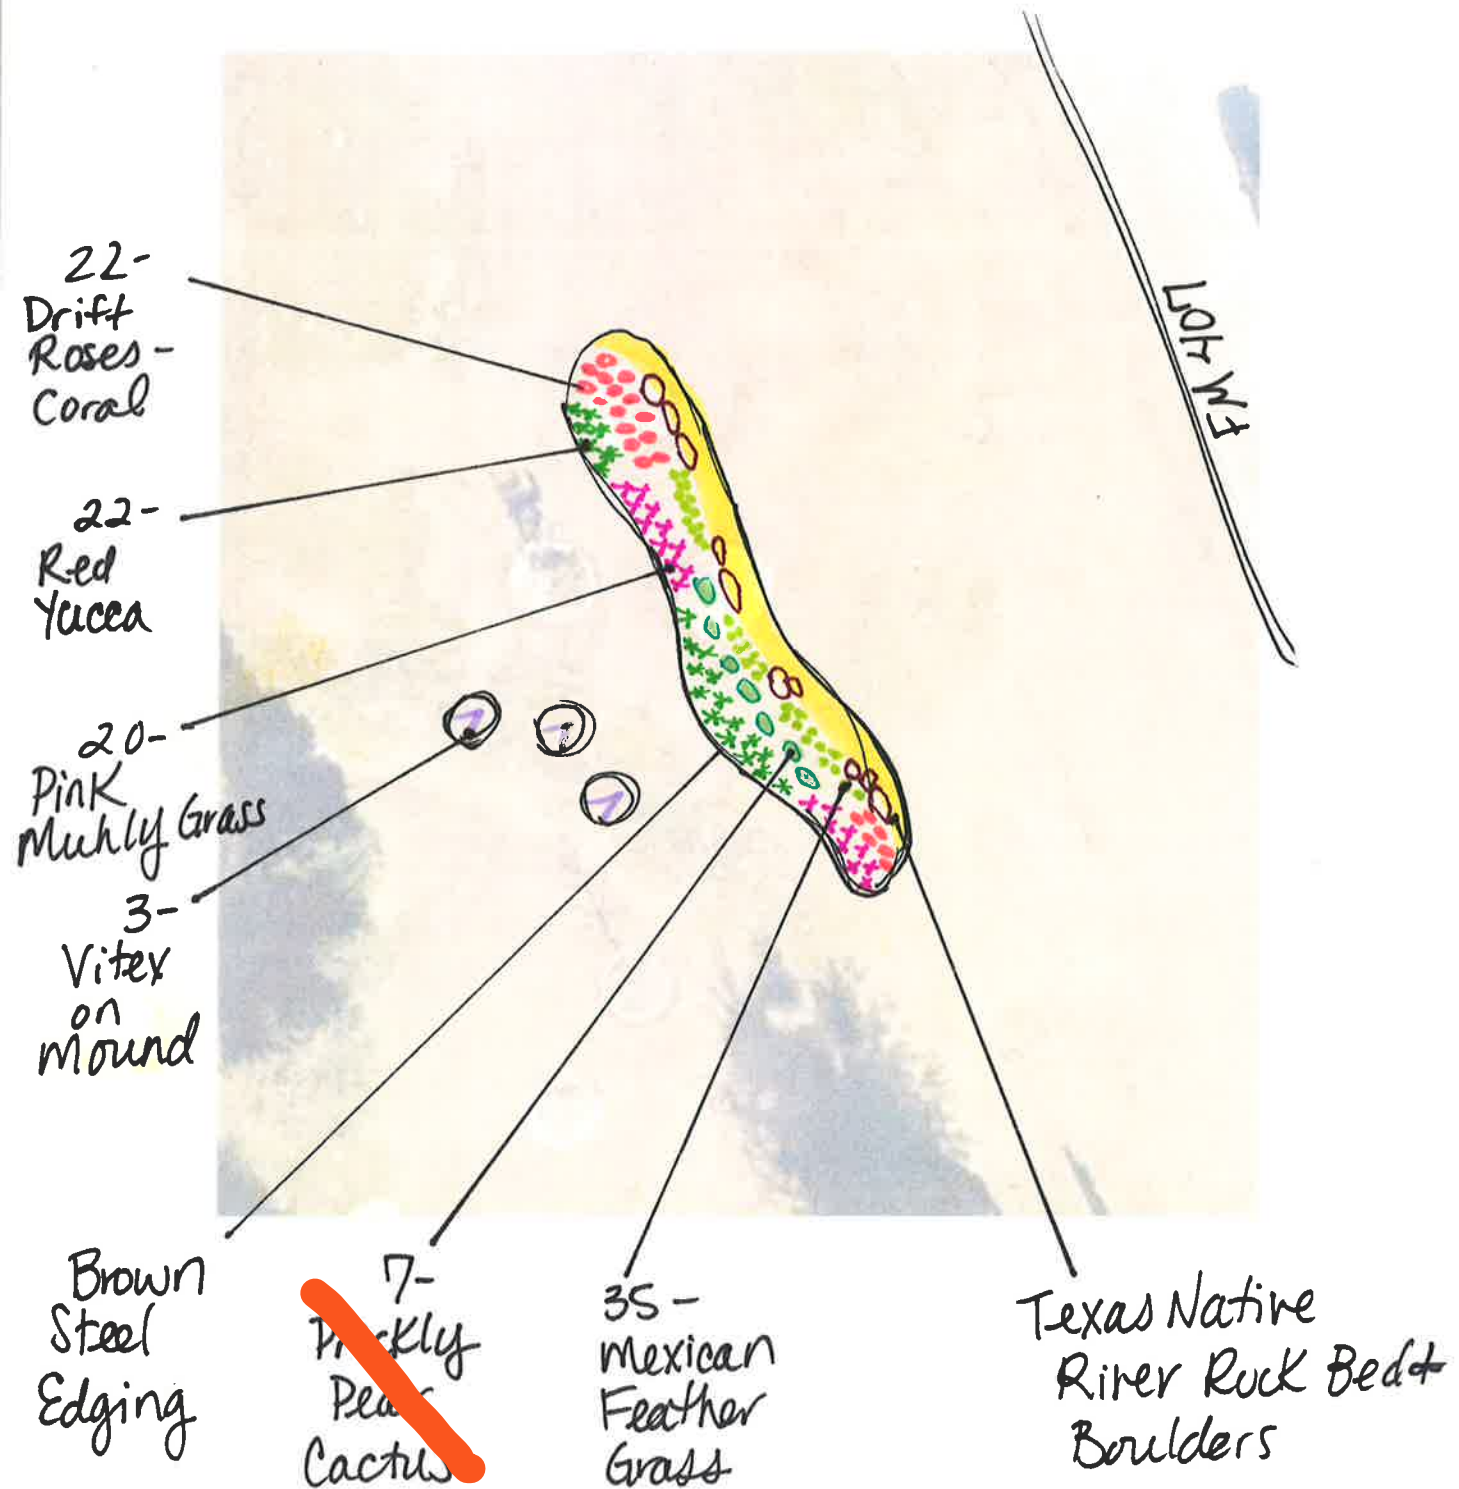 22-
Drift
Roses-
Coral
22-
Red
Yucca
20-
Pink
Muhly Grass
3-
Vitex
on
Mound
Brown
Steel
Edging
7-
Prickly
Pear
Cactus
35-
Mexican
Feather
Grass
Texas Native
River Rock Bed +
Boulders
FM 407